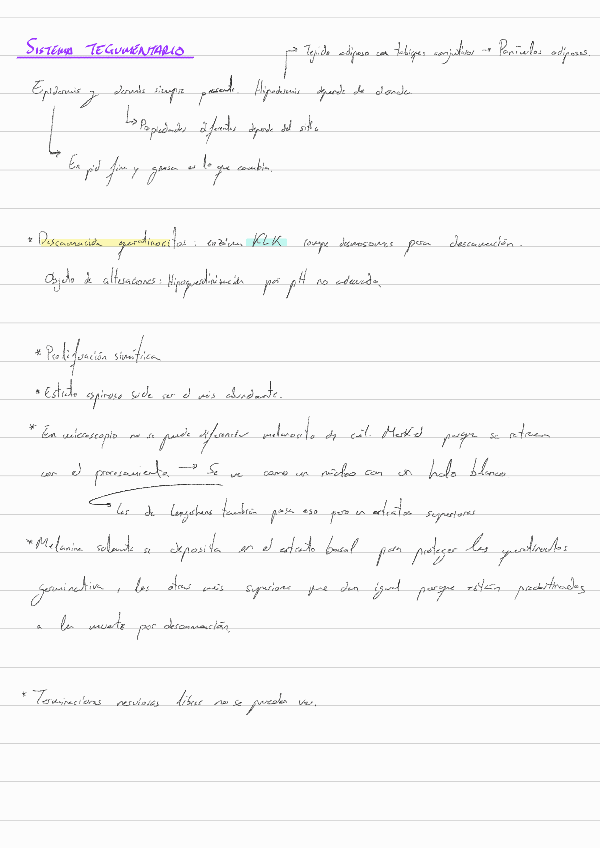 SISTEMA TEGUMENTARIO
Tejido adiposo con tabiques conjuntivos → Panículos adiposos.
Epidermis y dermis siempre presente. Hipodermis depende de donde
Propiedades diferentes depende del sitio
En piel fina y gruesa es lo que cambia.
* Descamación queratinocitos: enzima KLK rompe desmosomas para descamación.
Objeto de alteraciones: Hiperqueratinización por pH no adecuado.
* Proliferación simétrica
* Estrato espinoso suele ser el más abundante.
* En microscopio no se puede diferenciar melanocito de cél. Merkel porque se retraen
con el procesamiento → Se ve como un núcleo con un halo blanco
Los de Langerhans también pasa eso pero en estratos superiores
* Melanina solamente se deposita en el estrato basal para proteger los queratinocitos
germinativa, los otras más superiores que dan igual porque están predestinados
a la muerte por descamación.
* Terminaciones nerviosas libres no se pueden ver.